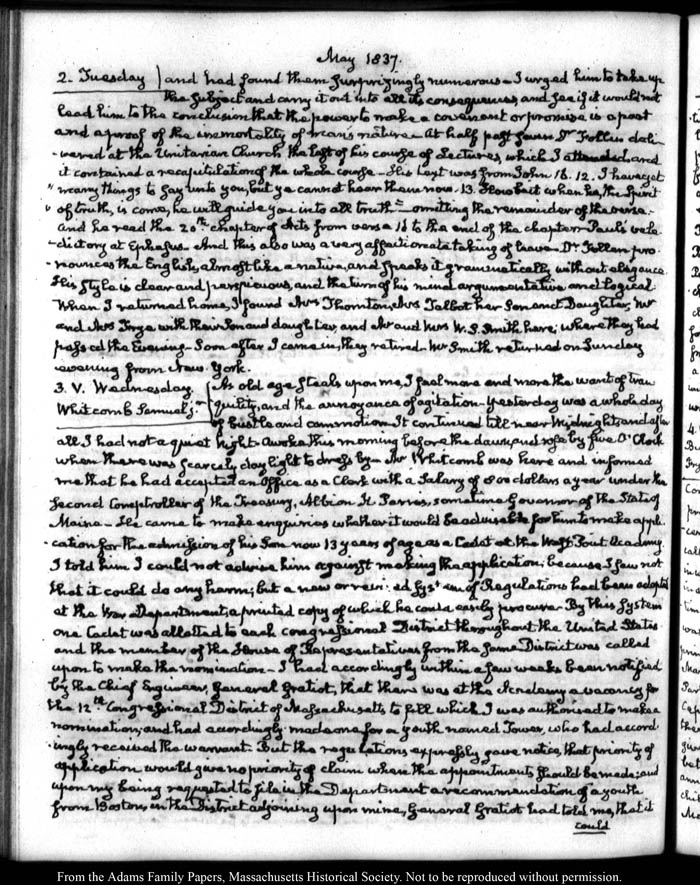 May 1837.
2. Tuesday and had found them surprizingly numerous - I urged him to take up
the subject and carry it out into all its consequences, and see if it would not
lead him to the conclusion that the power to make a covenant or promise is a part
and a proof of the immortality of man's nature - At half past seven Dr Follen deli-
-vered at the Unitarian Church the last of his course of Lectures, which I attended, and
it contained a recapitulation of the whole course - His text was from John 16. 12. I have yet
" many things to say unto you, but ye cannot hear them now. 13. Howbeit when he, the Spirit
" of truth, is come, he will guide you into all truth" - omitting the remainder of the verse -
And he read the 20th chapter of Acts from verse 16 to the end of the chapter - Paul's vale-
-dictory at Ephesus - And this also was a very affectionate taking of leave - Dr Follen pro-
-nounces the English, almost like a native, and speaks it grammatically, without elegance.
His style is clear and perspicuous, and the turn of his mind argumentative and logical.
When I returned home, I found Mrs Thornton, Mrs Talbot her Son and Daughter, Mr
and Mrs Frye with their Son and daughter, and Mr and Mrs W. S. Smith here; where they had
passed the Evening - Soon after I came in, they retired - Mr Smith returned on Sunday
evening from New-York.
3. V. Wednesday. As old age steals upon me, I feel more and more the want of tran
Whitcomb Samuel jr - quility, and the annoyance of agitation - Yesterday was a whole day
of bustle and commotion - It continued till near Midnight; and after
all I had not a quiet Night - Awoke this morning before the dawn, and rose by five O'Clock
when there was scarcely day light to dress by - Mr Whitcomb was here and informed
me that he had accepted an Office as a Clerk with a Salary of 800 dollars a year under the
Second Comptroller of the Treasury, Albion K. Parris, sometime Governor of the State of
Maine - He came to make enquiries whether it would be advisable for him to make appli-
-cation for the admission of his Son now 13 years of age as a Cadet at the West-Point Academy
I told him I could not advise him against making the application; because I saw not
that it could do any harm; but a new or revised System of Regulations had been adopted
at the War Department, a printed copy of which he could easily procure - By this System
one Cadet was allotted to each Congressional District throughout the United States
and the member of the House of Representatives from the same District was called
upon to make the nomination - I had accordingly within a few weeks been notified
by the Chief Engineer, General Gratiot, that there was at the Academy a vacancy for
the 12th Congressional District of Massachusetts to fill which I was authorised to make a
nomination, and had accordingly made one for a youth named Tower, who had accord-
-ingly received the warrant. But the regulations expressly gave notice, that priority of
application would give no priority of claim where the appointments should be made; and
upon my being requested to file in the Department a recommendation of a youth
from Boston, in the District adjoining upon mine, General Gratiot had told me, that it
could
From the Adams Family Papers, Massachusetts Historical Society. Not to be reproduced without permission.